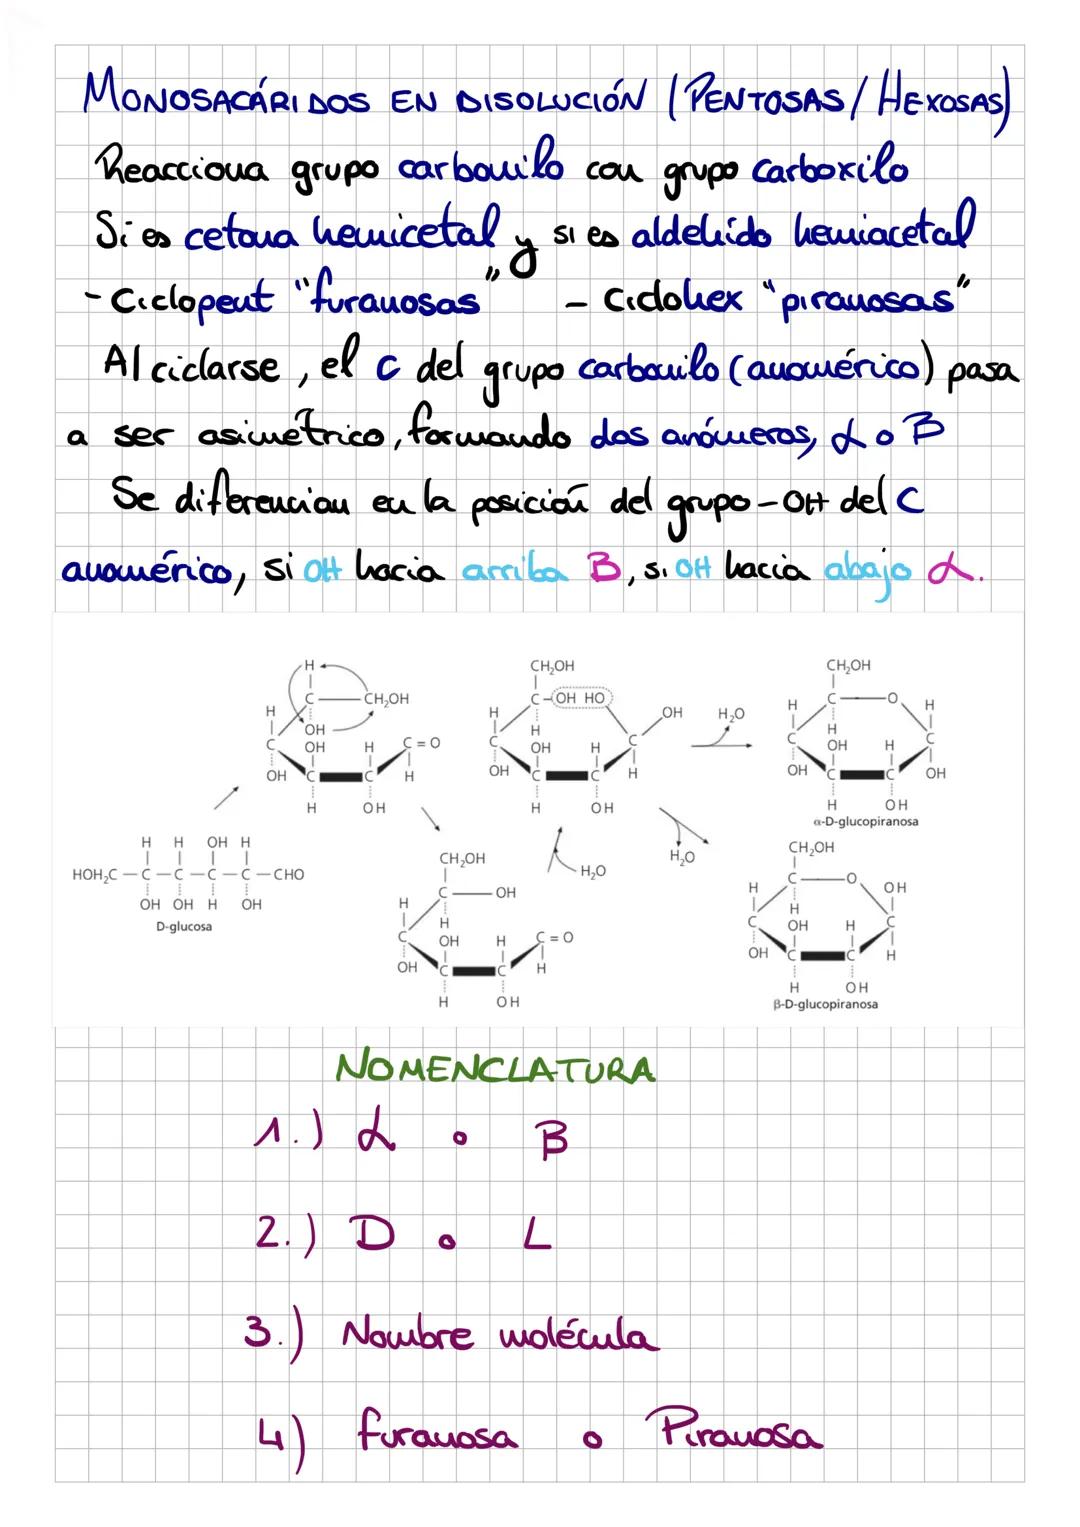 MONOSACÁRIDOS EN DISOLUCIÓN (PENTOSAS/HEXOSAS)
Reacciona grupo carbonilo con grupo carboxilo
Si es cetona hemicetal y si es aldehído hemiacetal
- Ciclopent "furanosas" - Ciclohex "piranosas"
Al ciclarse, el C del grupo carbonilo (anomérico) pasa
a ser asimétrico, formando dos anómeros, α o B
Se diferencian en la posición del grupo -OH del C
anomérico, si OH hacia arriba B, si OH hacia abajo α.
H
C
CH₂OH
H
OH
C
OH
H
C = O
OH
C
C
H
H
OH
CH₂OH
C
OH HO
H
H
OH
C
OH
H
C
OH
C
C
H
H
OH
H₂O
CH₂OH
C
O
H
H
H
C
OH
H
C
OH
C
C
OH
H
OH
α-D-glucopiranosa
H H OH H
HOH₂C - C - C - C - C - CHO
OH OH H OH
D-glucosa
CH₂OH
C
OH
H
H
C
OH
H
C = O
OH
C
C
H
H
OH
H₂O
H₂O
CH₂OH
C
O
H
OH
H
C
OH
H
C
OH
C
C
H
H
OH
β-D-glucopiranosa
NOMENCLATURA
1.) α o B
2.) D o L
3.) Nombre molécula
4) furanosa o Piranosa